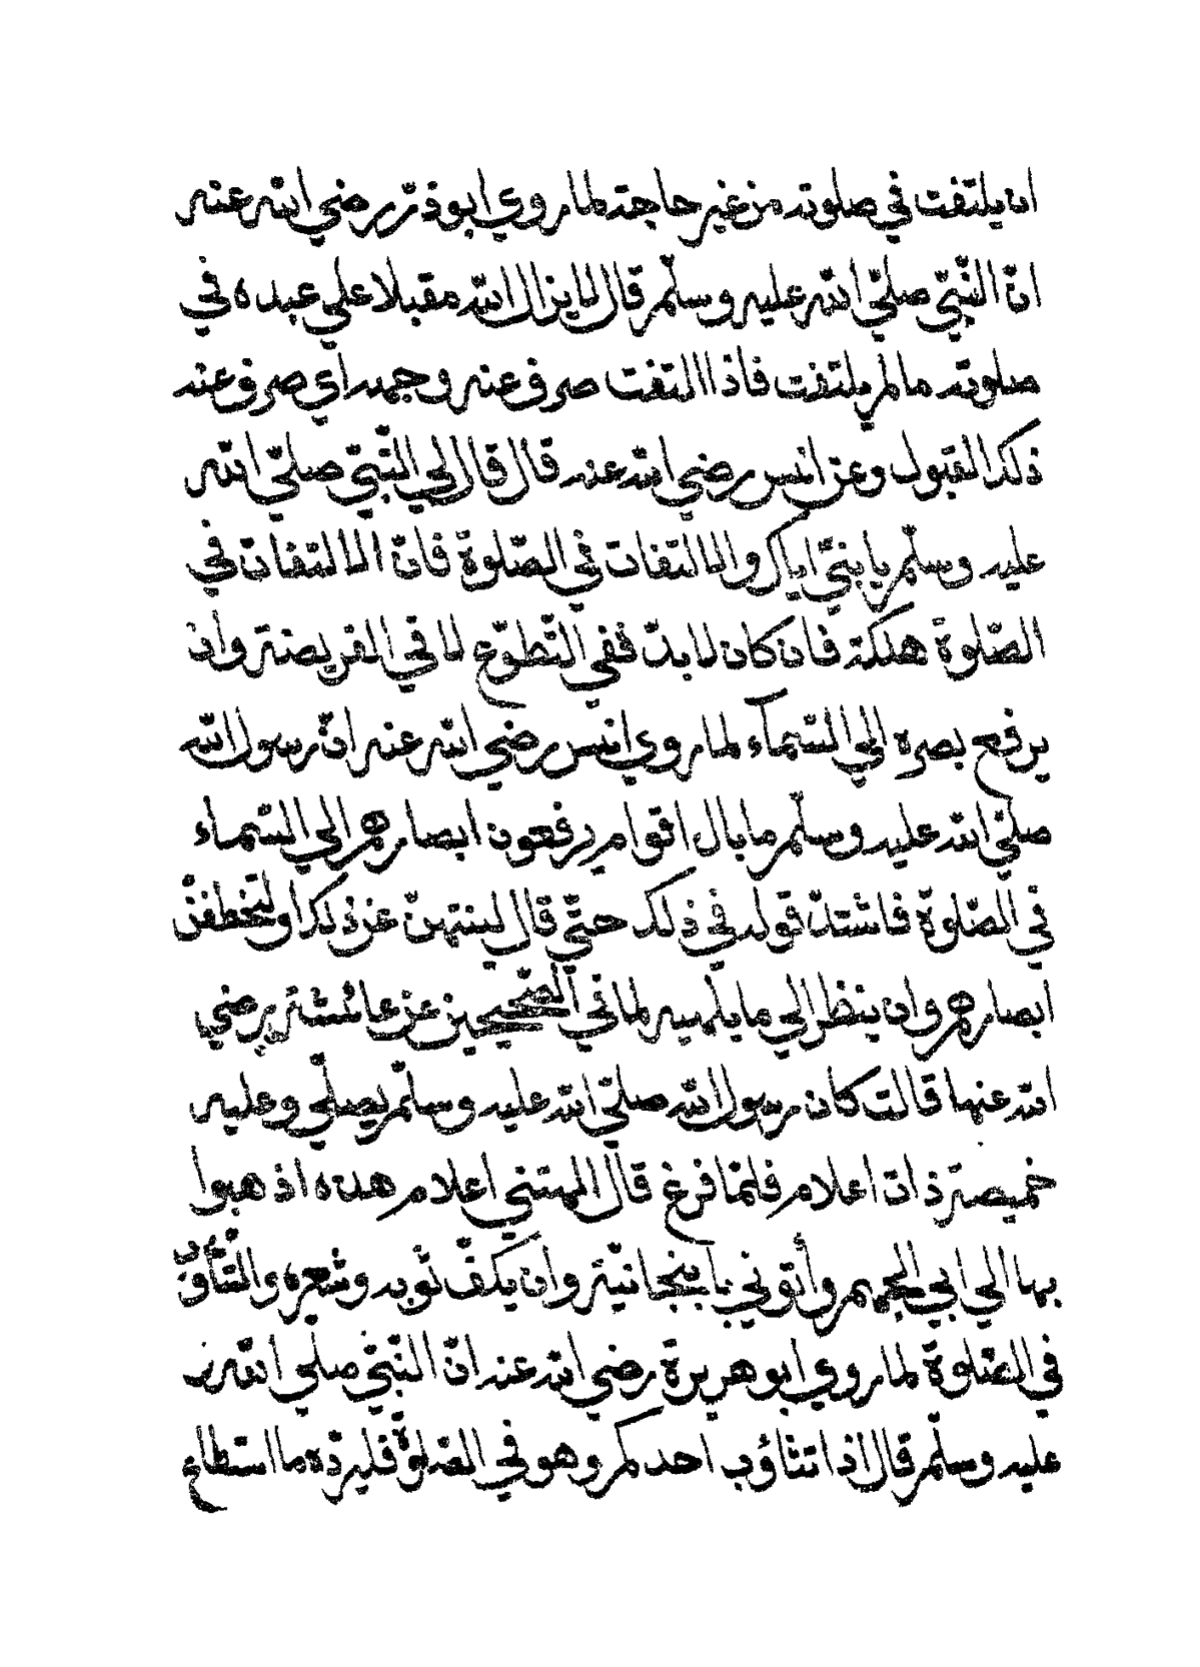 ان يلتفت في صلوته من غير حاجة لما روي ابو ذرّ رضي الله عنه
انّ النّبيّ صلّي الله عليه وسلّم قال لا يزال الله مقبلا علي عبده في
صلوته ما لم يلتفت فاذا التفت صرف عنه وجهه اي صرف عنه
ذلك القبول وعن انس رضي الله عنه قال قال لي النّبيّ صلّي الله
عليه وسلّم يا بنيّ اياك والالتفات في الصّلوة فانّ الالتفات في
الصّلوة هلكة فان كان لا بدّ ففي التّطوّع لا في الفريضة وان
يرفع بصره الي السّماء لما روي انس رضي الله عنه انّ رسول الله
صلّي الله عليه وسلّم ما بال اقوام يرفعون ابصارهم الي السّماء
في الصّلوة فاشتدّ قوله في ذلك حتّي قال لينتهنّ عن ذلك او لتخطفنّ
ابصارهم وان ينظر الي ما يلهيه لما في الصّحيحين عن عائشة رضي
الله عنها قالت كان رسول الله صلّي الله عليه وسلّم يصلّي وعليه
خميصة ذات اعلام فلمّا فرغ قال الهتني اعلام هذه اذهبوا
بها الي ابي الجهم وأتوني بابنجانيّة وان يكفّ ثوبه وشعره والتّثأوب
في الصّلوة لما روي ابو هريرة رضي الله عنه انّ النّبيّ صلّي الله
عليه وسلّم قال اذا تثاؤب احدكم وهو في الصّلوة فليردّه ما استطاع